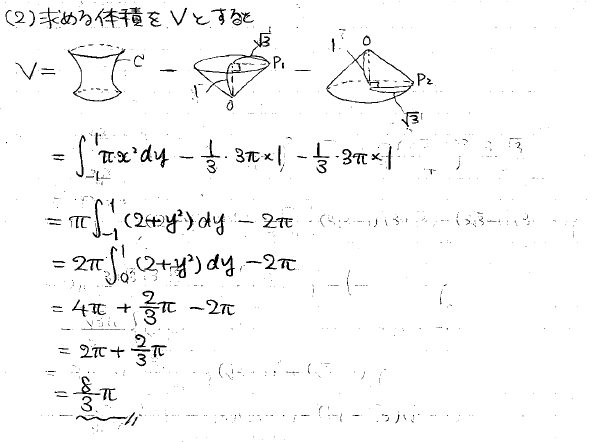 (2) 求める体積をVとすると
V = C − √3 P₁ 1 O − 1 O P₂ √3
= ∫₋₁¹ πx² dy − 1/3 · 3π × 1 − 1/3 · 3π × 1
= π∫₋₁¹ (2+y²) dy − 2π
= 2π∫₀¹ (2+y²) dy − 2π
= 4π + 2/3 π − 2π
= 2π + 2/3 π
= 8/3 π